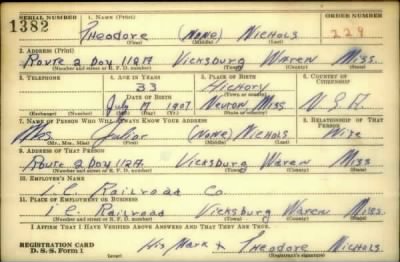 SERIAL NUMBER 1. NAME (Print) ORDER NUMBER
1382 Theodore (None) Nichols 229
(First) (Middle) (Last)
2. ADDRESS (Print)
Route 2 Box 112A Vicksburg Waren Miss
(Number and street or R. F. D. number) (Town) (County) (State)
3. TELEPHONE 4. AGE IN YEARS 5. PLACE OF BIRTH 6. COUNTRY OF CITIZENSHIP
33 Hickory
DATE OF BIRTH (Town or county)
July 17 1907 Neuton Miss U.S.A.
(Exchange) (Number) (Mo.) (Day) (Yr.) (State or country)
7. NAME OF PERSON WHO WILL ALWAYS KNOW YOUR ADDRESS 8. RELATIONSHIP OF THAT PERSON
Mrs (None) Nichols Wife
(Mr., Mrs., Miss) (First) (Middle) (Last)
9. ADDRESS OF THAT PERSON
Route 2 Box 112A Vicksburg Waren Miss
(Number and street or R. F. D. number) (Town) (County) (State)
10. EMPLOYER'S NAME
I. C. Railroad Co.
11. PLACE OF EMPLOYMENT OR BUSINESS
I. C. Railroad Vicksburg Waren Miss.
(Number and street or R. F. D. number) (Town) (County) (State)
I AFFIRM THAT I HAVE VERIFIED ABOVE ANSWERS AND THAT THEY ARE TRUE.
REGISTRATION CARD His Mark X Theodore Nichols.
D. S. S. Form 1 (over) (Registrant's signature)